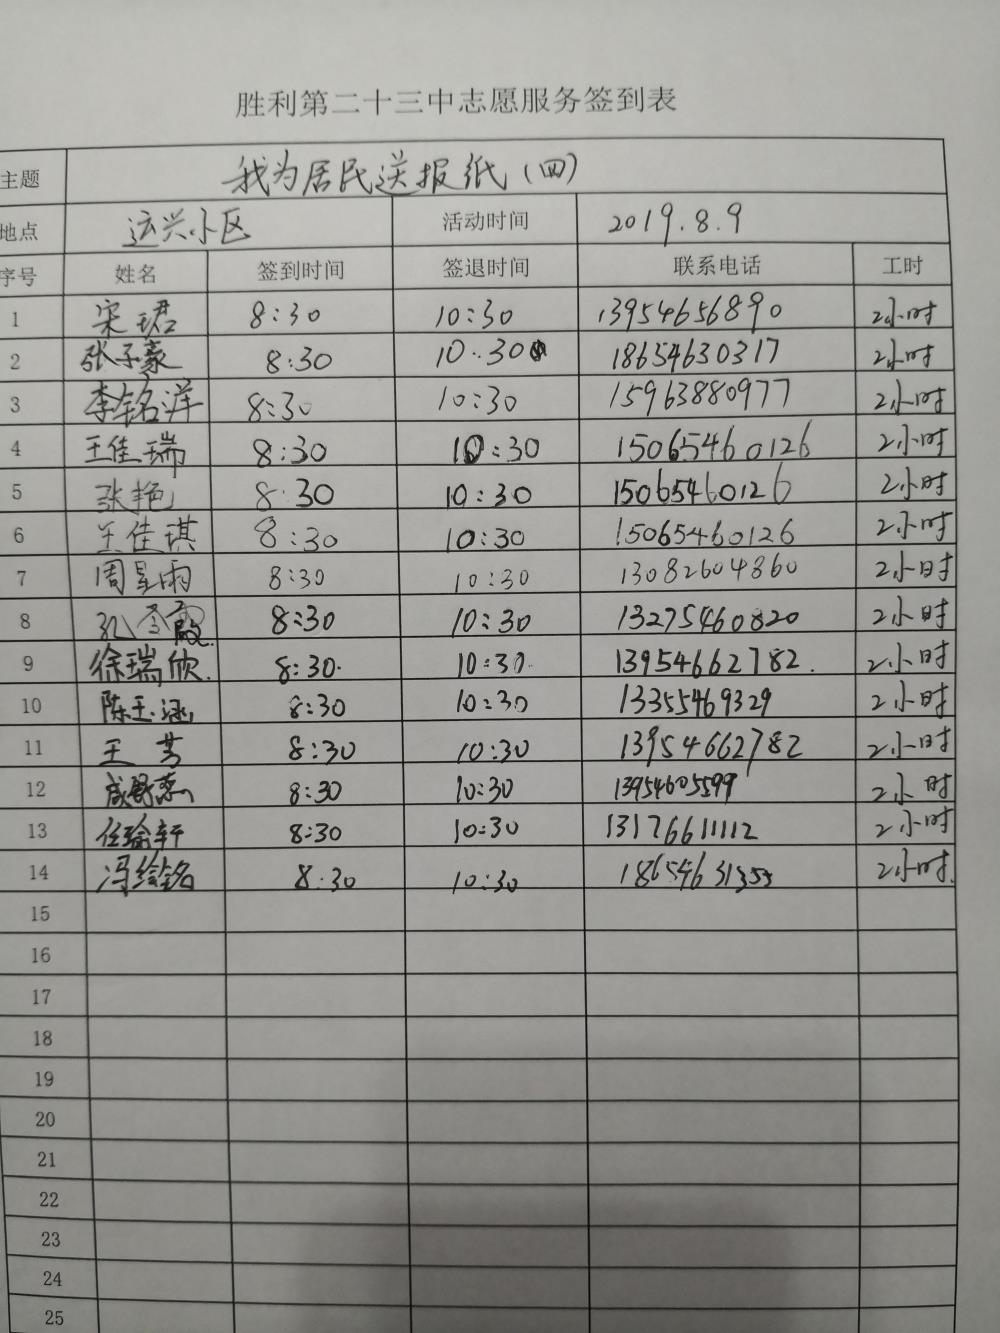 胜利第二十三中志愿服务签到表
主题 我为居民送报纸(四)
地点 运兴小区 活动时间 2019.8.9
序号 姓名 签到时间 签退时间 联系电话 工时
1 宋珺 8:30 10:30 13954656890 2小时
2 张子豪 8:30 10:30 18654630317 2小时
3 李铭洋 8:30 10:30 15963880977 2小时
4 王佳瑞 8:30 10:30 15065460126 2小时
5 张艳 8:30 10:30 15065460126 2小时
6 王佳琪 8:30 10:30 15065460126 2小时
7 周星雨 8:30 10:30 13082604860 2小时
8 8:30 10:30 13275460820 2小时
9 徐瑞欣. 8:30. 10:30. 13954662782. 2小时
10 陈玉涵 8:30 10:30 13355469329 2小时
11 王芳 8:30 10:30 13954662782 2小时
12 8:30 10:30 13954605599 2小时
13 任瑜轩 8:30 10:30 13176611112 2小时
14 冯绘铭 8:30 10:30 18654631355 2小时.
15
16
17
18
19
20
21
22
23
24
25